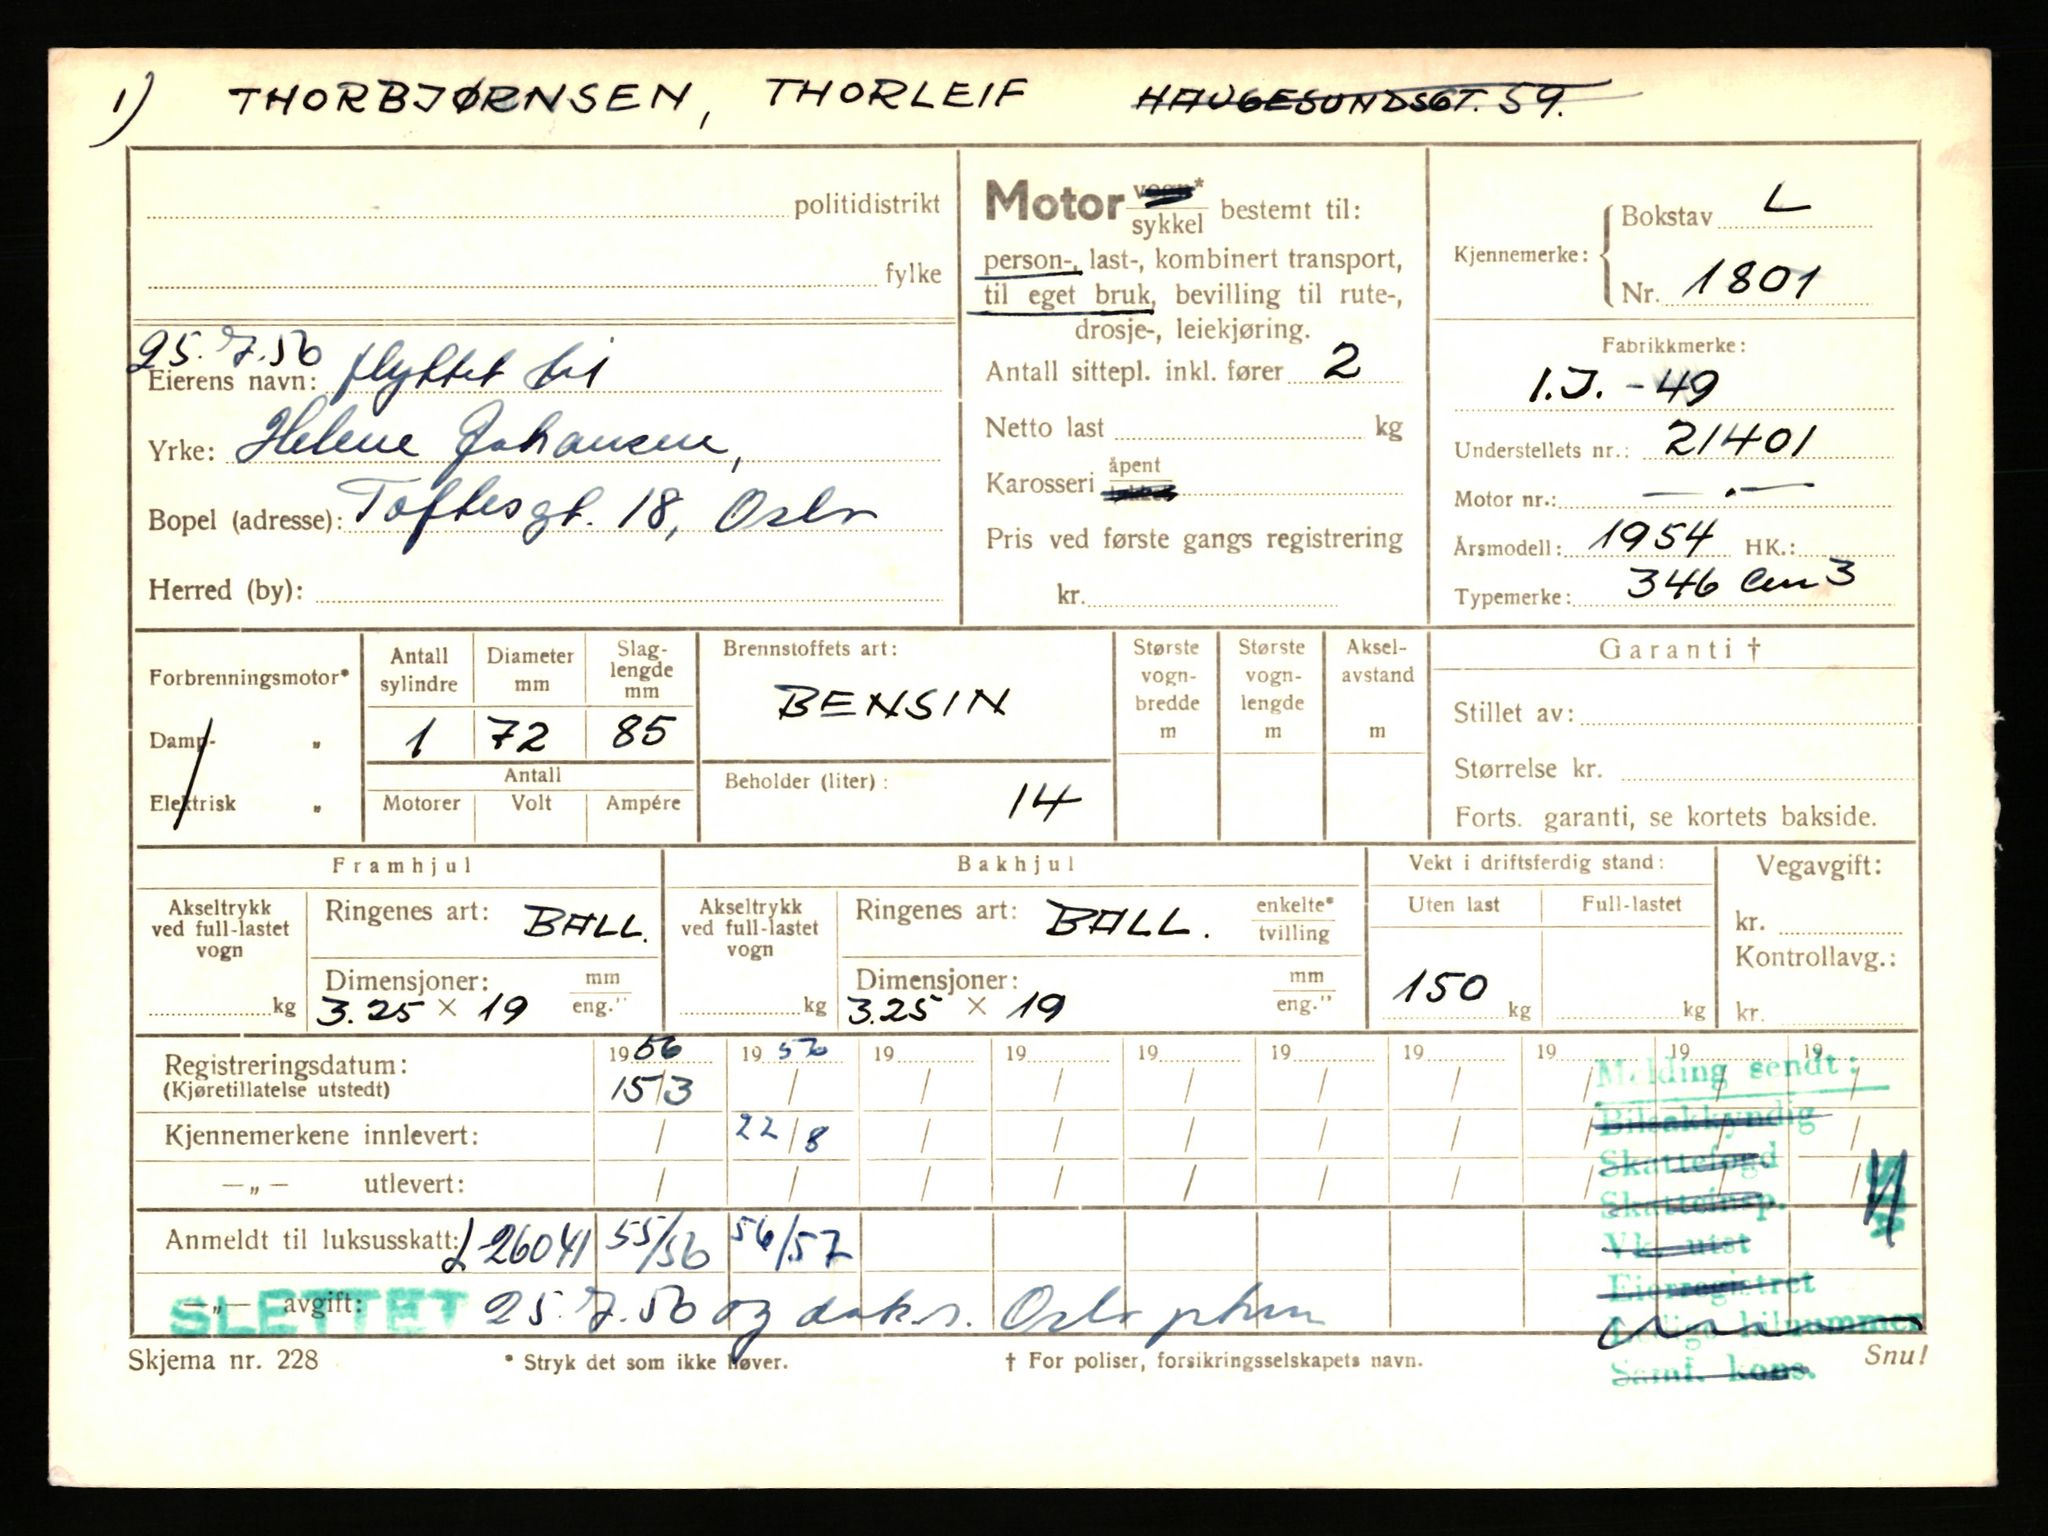 1) THORBJØRNSEN, THORLEIF HAUGESUNDSGT. 59.
politidistrikt
fylke
25.7.56 flyttet til
Eierens navn:
Yrke: Helene Johansen,
Bopel (adresse): Toftesgt. 18, Oslo
Herred (by):
Motor vogn* sykkel bestemt til:
person-, last-, kombinert transport,
til eget bruk, bevilling til rute-,
drosje-, leiekjøring.
Antall sittepl. inkl. fører 2
Netto last kg
Karosseri åpent
Pris ved første gangs registrering
kr.
Kjennemerke: Bokstav L
Nr. 1801
Fabrikkmerke:
I.J. - 49
Understellets nr.: 21401
Motor nr.: — . —
Årsmodell: 1954 HK.:
Typemerke: 346 cm3
Forbrenningsmotor*
Damp- „
Elektrisk „
Antall sylindre Diameter mm Slag-lengde mm
1 72 85
Antall
Motorer Volt Ampére
Brennstoffets art:
BENSIN
Beholder (liter): 14
Største vogn-bredde m
Største vogn-lengde m
Aksel-avstand m
Garanti †
Stillet av:
Størrelse kr.
Forts. garanti, se kortets bakside.
Framhjul
Akseltrykk ved full-lastet vogn kg
Ringenes art: BALL.
Dimensjoner: mm eng."
3.25 × 19
Bakhjul
Akseltrykk ved full-lastet vogn kg
Ringenes art: BALL. enkelte* tvilling
Dimensjoner: mm eng."
3.25 × 19
Vekt i driftsferdig stand:
Uten last Full-lastet
150 kg kg
Vegavgift:
kr.
Kontrollavg.:
kr.
Registreringsdatum: 1956 1956 19 19 19 19 19 19 19 19
(Kjøretillatelse utstedt) 15/3 / / / / / / / / /
Kjennemerkene innlevert: / 22/8 / / / / / / / /
—„— utlevert: / / / / / / / / / /
Anmeldt til luksusskatt: L 26041 55/56 56/57
—„— avgift:
SLETTET 25.7.56 og dok.s. Oslo
Melding sendt:
Bilsakkyndig
Skattefogd
Skatteinsp.
Vk. utst
Eierregistret
Ledige bilnummer
Samf. kons.
Skjema nr. 228
* Stryk det som ikke høver.
† For poliser, forsikringsselskapets navn.
Snu!